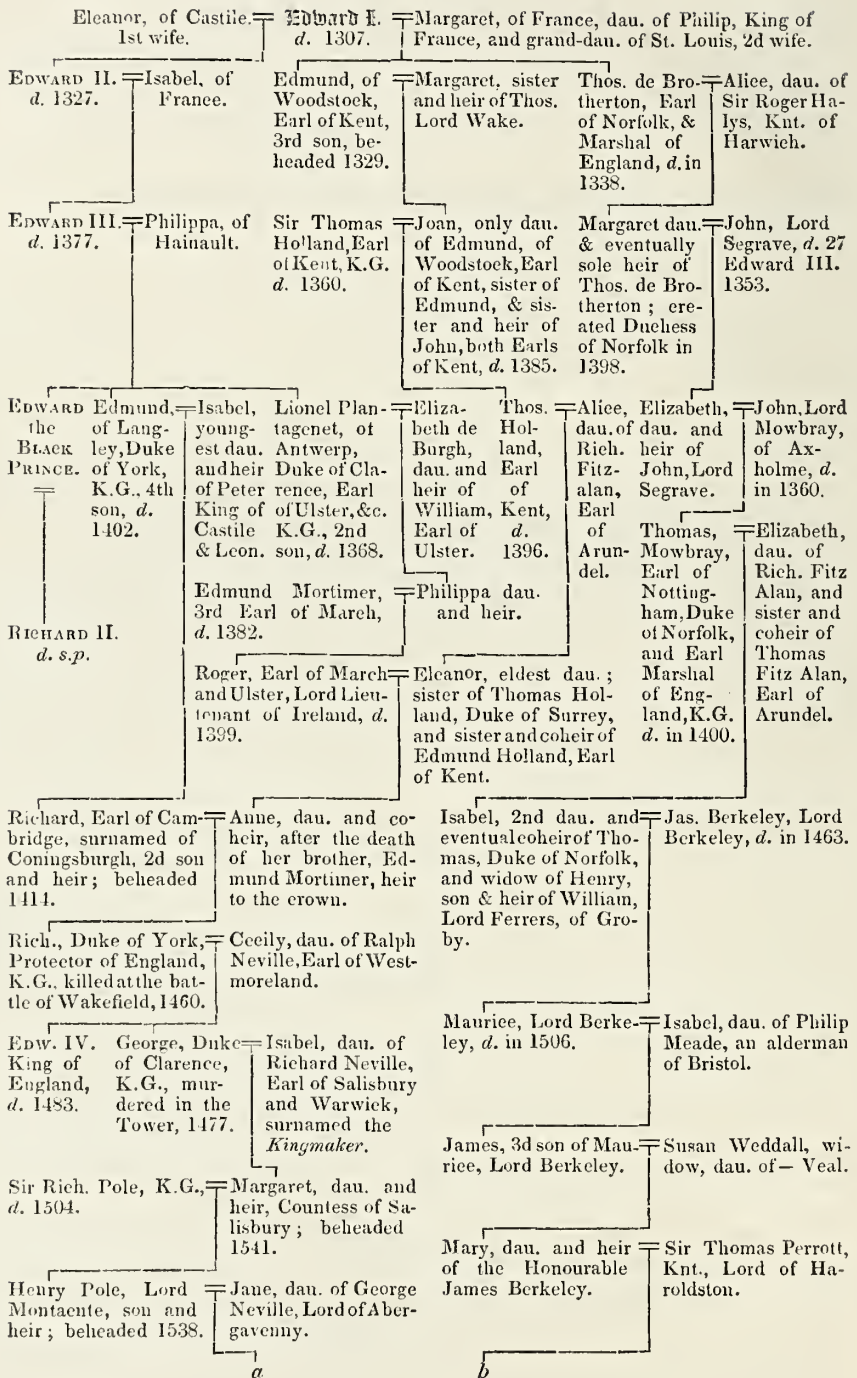 Eleanor, of Castile.
1st wife.
Edward I.
d. 1307.
Margaret, of France, dau. of Philip, King of
France, and grand-dau. of St. Louis, 2d wife.
EDWARD II.
d. 1327.
Isabel, of
France.
Edmund, of
Woodstock,
Earl of Kent,
3rd son, be-
headed 1329.
Margaret, sister
and heir of Thos.
Lord Wake.
Thos. de Bro-
therton, Earl
of Norfolk, &
Marshal of
England, d. in
1338.
Alice, dau. of
Sir Roger Ha-
lys, Knt. of
Harwich.
EDWARD III.
d. 1377.
Philippa, of
Hainault.
Sir Thomas
Holland, Earl
of Kent, K.G.
d. 1360.
Joan, only dau.
of Edmund, of
Woodstock, Earl
of Kent, sister of
Edmund, & sis-
ter and heir of
John, both Earls
of Kent, d. 1385.
Margaret dau.
& eventually
sole heir of
Thos. de Bro-
therton; cre-
ated Duchess
of Norfolk in
1398.
John, Lord
Segrave, d. 27
Edward III.
1353.
EDWARD
the
BLACK
PRINCE.
Edmund,
of Lang-
ley, Duke
of York,
K.G., 4th
son, d.
1402.
Isabel,
young-
est dau.
and heir
of Peter
King of
Castile
& Leon.
Lionel Plan-
tagenet, of
Antwerp,
Duke of Cla-
rence, Earl
of Ulster, &c.
K.G., 2nd
son, d. 1368.
Eliza-
beth de
Burgh,
dau. and
heir of
William,
Earl of
Ulster.
Thos.
Hol-
land,
Earl
of
Kent,
d.
1396.
Alice,
dau. of
Rich.
Fitz-
alan,
Earl
of
Arun-
del.
Elizabeth,
dau. and
heir of
John, Lord
Segrave.
John, Lord
Mowbray,
of Ax-
holme, d.
in 1360.
RICHARD II.
d. s.p.
Edmund Mortimer,
3rd Earl of March,
d. 1382.
Philippa dau.
and heir.
Thomas,
Mowbray,
Earl of
Notting-
ham, Duke
of Norfolk,
and Earl
Marshal
of Eng-
land, K.G.
d. in 1400.
Elizabeth,
dau. of
Rich. Fitz
Alan, and
sister and
coheir of
Thomas
Fitz Alan,
Earl of
Arundel.
Roger, Earl of March
and Ulster, Lord Lieu-
tenant of Ireland, d.
1399.
Eleanor, eldest dau.;
sister of Thomas Hol-
land, Duke of Surrey,
and sister and coheir of
Edmund Holland, Earl
of Kent.
Richard, Earl of Cam-
bridge, surnamed of
Coningsburgh, 2d son
and heir; beheaded
1414.
Anne, dau. and co-
heir, after the death
of her brother, Ed-
mund Mortimer, heir
to the crown.
Isabel, 2nd dau. and
eventual coheir of Tho-
mas, Duke of Norfolk,
and widow of Henry,
son & heir of William,
Lord Ferrers, of Gro-
by.
Jas. Berkeley, Lord
Berkeley, d. in 1463.
Rich., Duke of York,
Protector of England,
K.G., killed at the bat-
tle of Wakefield, 1460.
Cecily, dau. of Ralph
Neville, Earl of West-
moreland.
Maurice, Lord Berke-
ley, d. in 1506.
Isabel, dau. of Philip
Meade, an alderman
of Bristol.
EDW. IV.
King of
England,
d. 1483.
George, Duke
of Clarence,
K.G., mur-
dered in the
Tower, 1477.
Isabel, dau. of
Richard Neville,
Earl of Salisbury
and Warwick,
surnamed the
Kingmaker.
James, 3d son of Mau-
rice, Lord Berkeley.
Susan Weddall, wi-
dow, dau. of — Veal.
Sir Rich. Pole, K.G.,
d. 1504.
Margaret, dau. and
heir, Countess of Sa-
lisbury; beheaded
1541.
Mary, dau. and heir
of the Honourable
James Berkeley.
Sir Thomas Perrott,
Knt., Lord of Ha-
roldston.
Henry Pole, Lord
Montacute, son and
heir; beheaded 1538.
Jane, dau. of George
Neville, Lord of Aber-
gavenny.
a
b